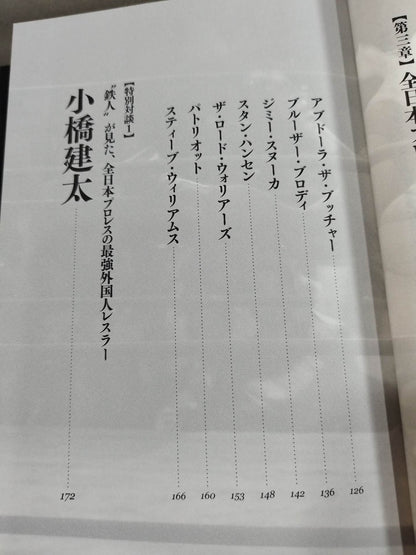 【第三章】全日本
アブドーラ・ザ・ブッチャー 126
ブルーザー・ブロディ 136
ジミー・スヌーカ 142
スタン・ハンセン 148
ザ・ロード・ウォリアーズ 153
パトリオット 160
スティーブ・ウィリアムス 166
【特別対談1】
“鉄人”が見た、全日本プロレスの最強外国人レスラー
小橋建太 172